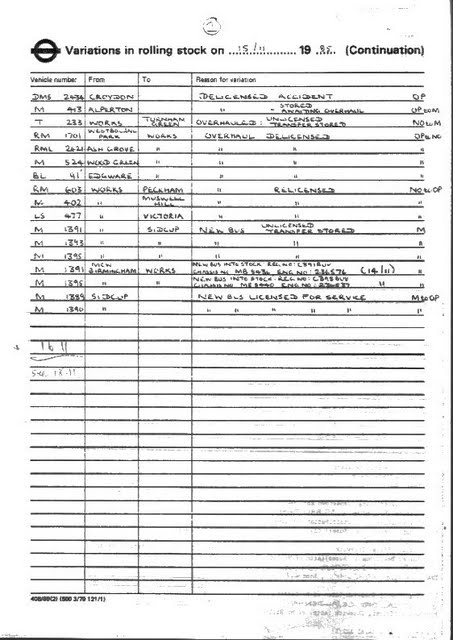 2
Variations in rolling stock on 15/11 1985 (Continuation)
Vehicle number From To Reason for variation
DMS 2494 CROYDON DELICENSED ACCIDENT OP
M 413 ALPERTON " - STORED AWAITING OVERHAUL
T 233 WORKS TURNHAM GREEN OVERHAULED: UNLICENSED TRANSFER STORED
RM 1701 WESTBOURNE PARK WORKS OVERHAUL DELICENSED
RML 2621 ASH GROVE " " " "
M 524 WOOD GREEN " " " "
BL 41 EDGWARE " " " "
RM 603 WORKS PECKHAM " RELICENSED
M 402 " MUSWELL HILL " " "
LS 477 " VICTORIA " " "
M 1391 " SIDCUP NEW BUS UNLICENSED TRANSFER STORED M
M 1393 " " " " "
M 1395 " " " " "
M 1391 NEW BIRMINGHAM WORKS NEW BUS INTO STOCK REG. NO: C391BUV CHASSIS NO MB ENG NO: (14/11) "
M 1395 " " NEW BUS INTO STOCK REG. NO: C395BUV CHASSIS NO MB ENG NO: " "
M 1389 SIDCUP NEW BUS LICENSED FOR SERVICE M to OP
M 1390 " " " " " " "
16 11
18-11